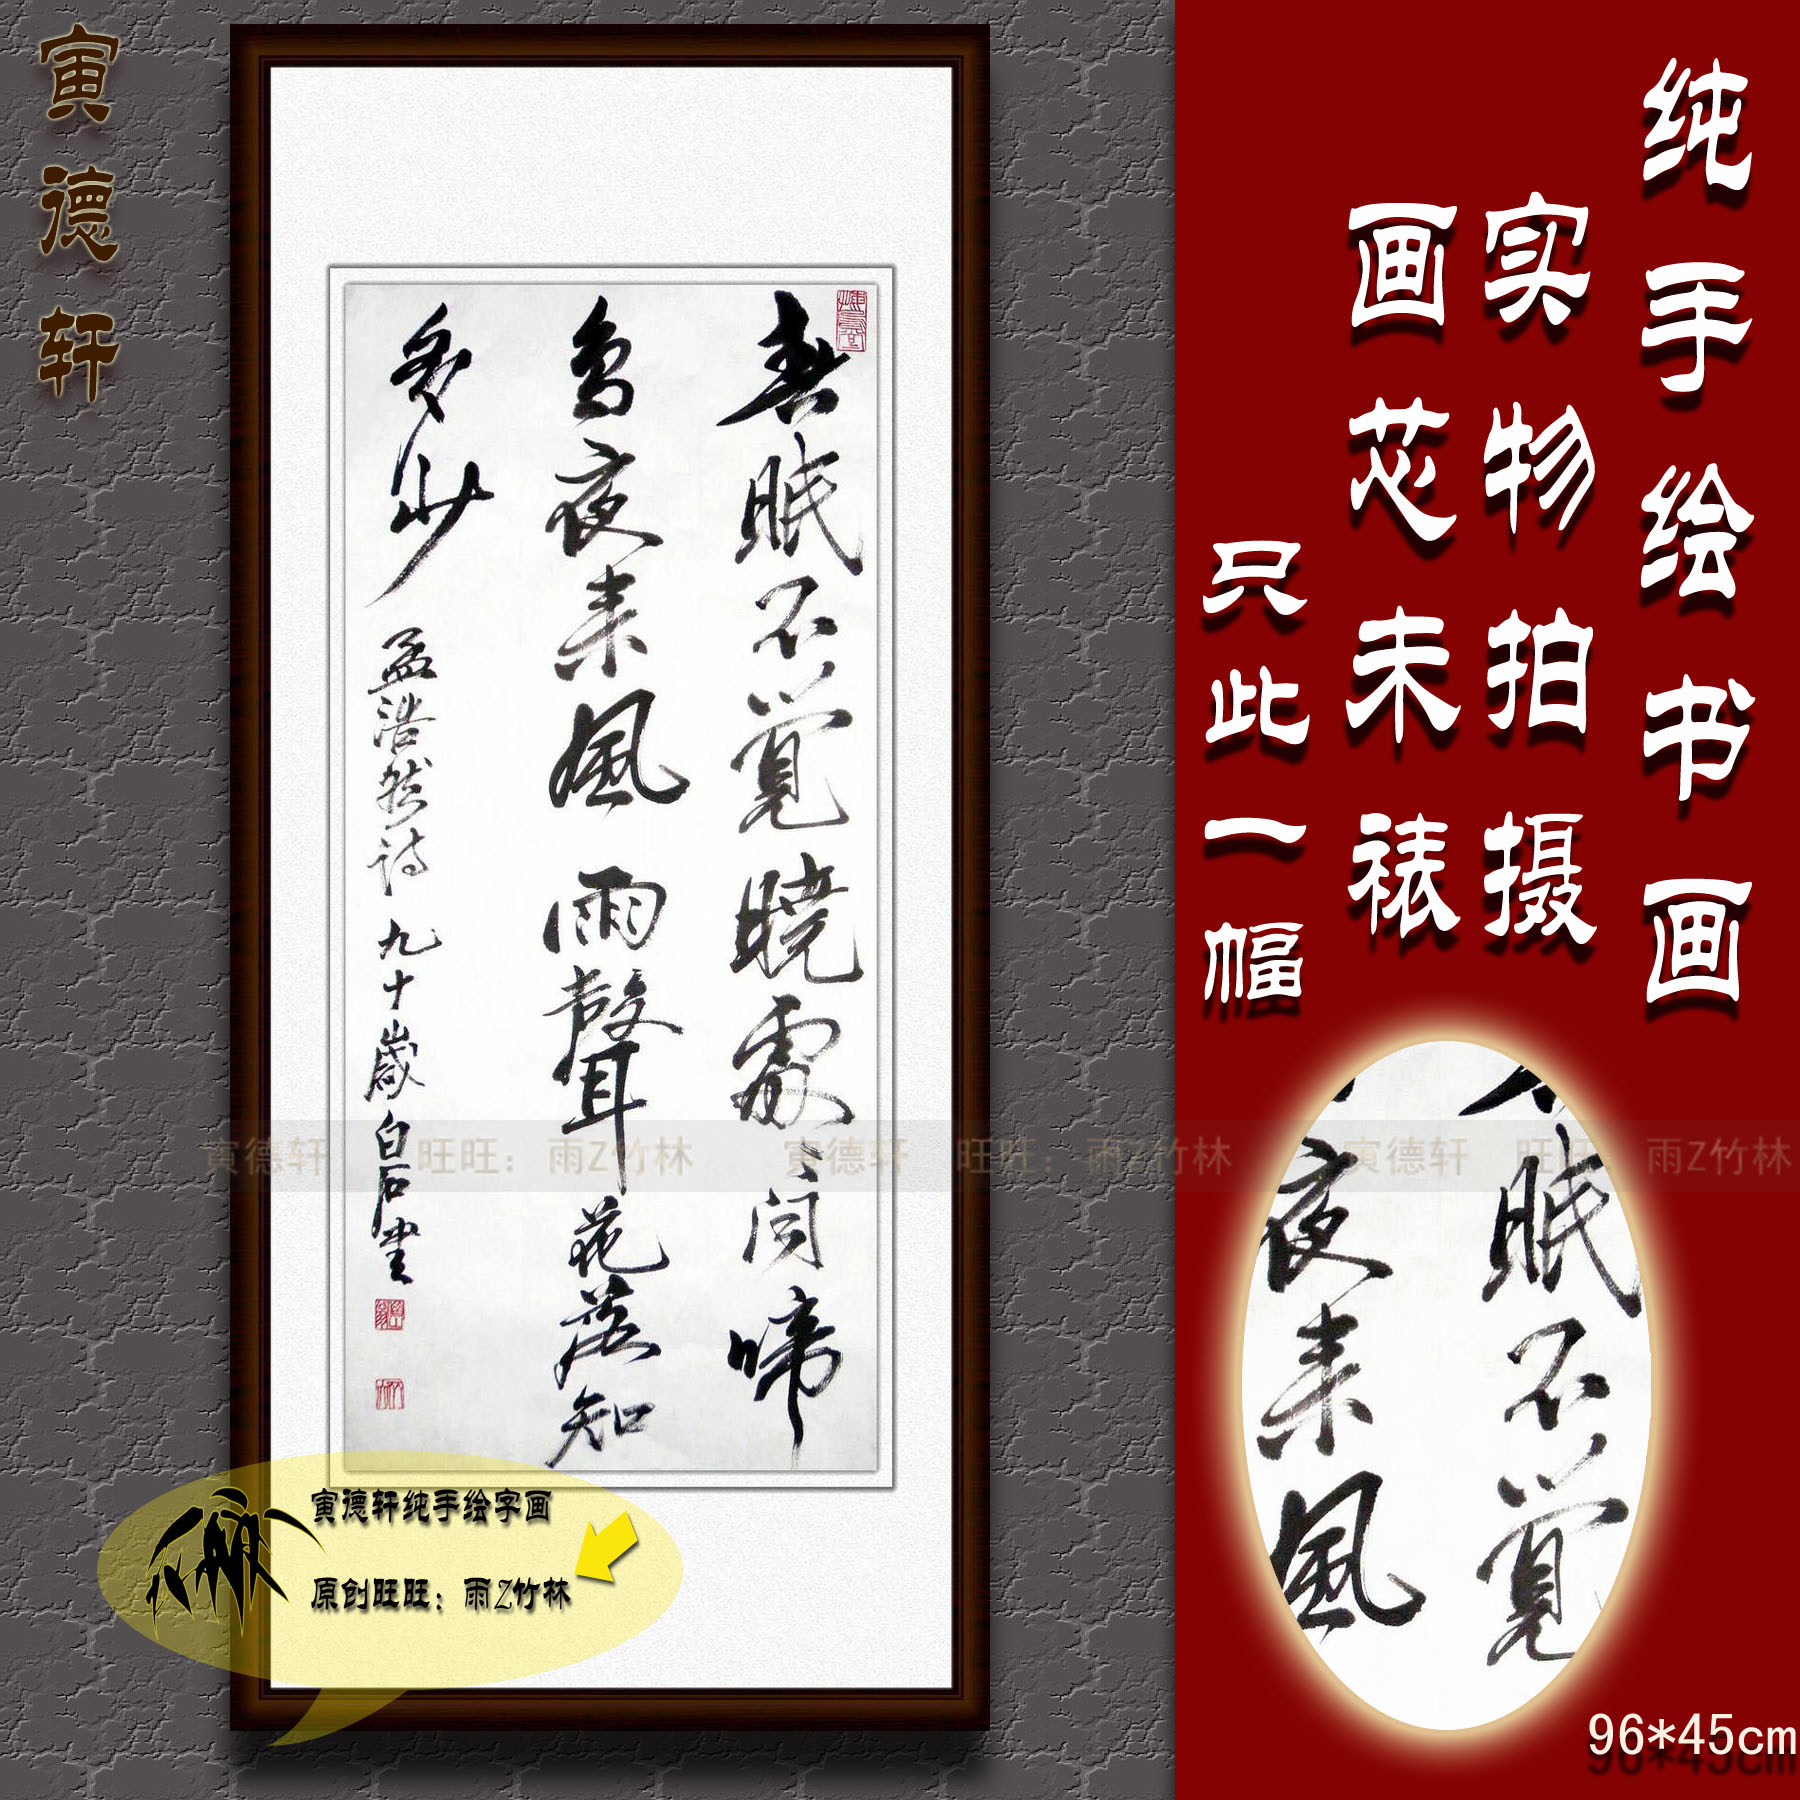 寅德轩
纯手绘书画
实物拍摄
画芯未裱
只此一幅
春眠不覺曉處々聞啼
鳥夜来風雨聲花落知
多少 孟浩然詩 九十歲白石書
寅德轩 旺旺：雨Z竹林 寅德轩 旺旺：雨Z竹林 寅德轩 旺旺：雨Z竹林
夜来風
眠不覺
寅德轩纯手绘字画
原创旺旺：雨Z竹林
96*45cm